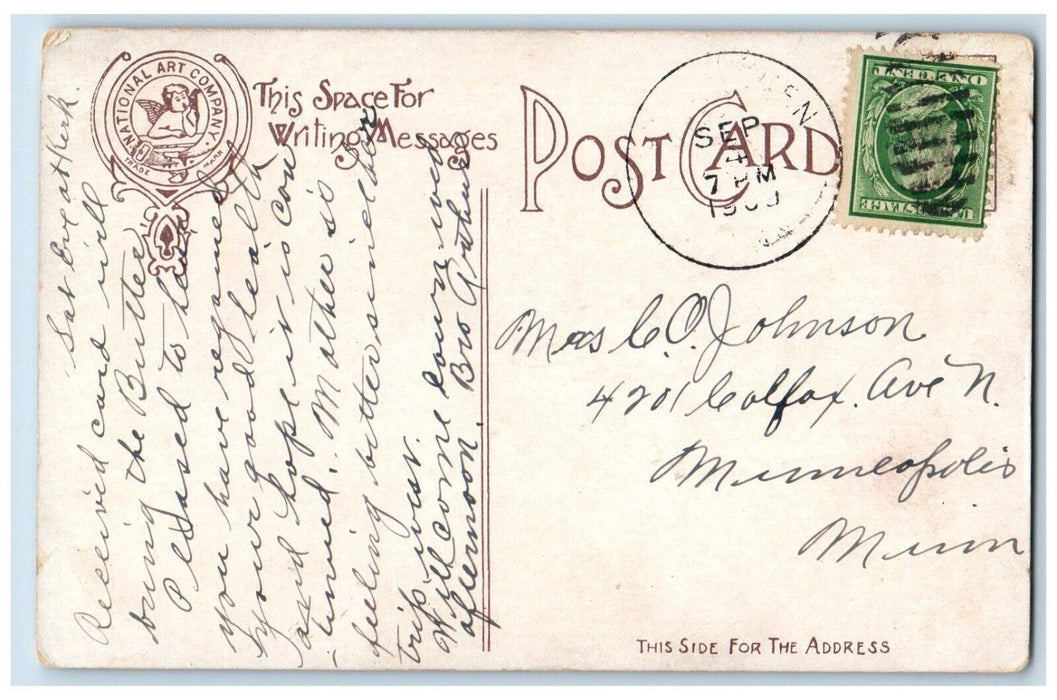 NATIONAL ART COMPANY
TRADE MARK
This Space For
Writing Messages
POST CARD
SEP
4
7 PM
1909
ONE CENT
U.S. POSTAGE
Mrs C.O. Johnson
4201 Colfax. Ave N.
Minneapolis
Minn
THIS SIDE FOR THE ADDRESS
Sat Eve at
Received card will
bring the Butter
Pleased to hear
you have regained
your good health
and hope it is con
tinued. Mother is
feeling better since her
trip west.
Will come down wed
afternoon. Bro Arthur